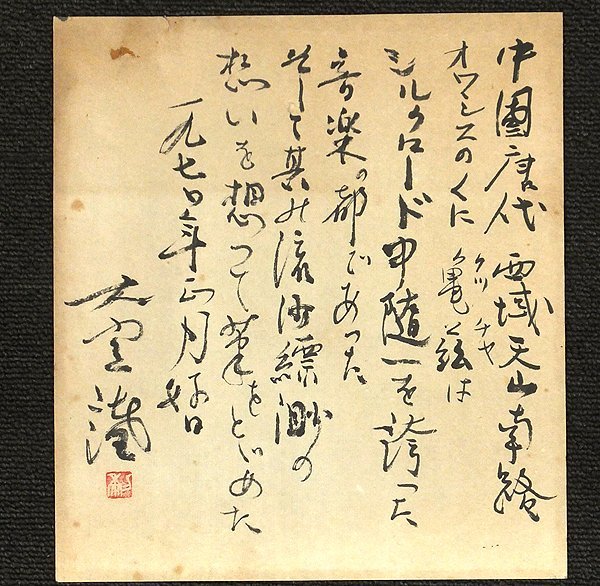 中國唐代 西域天山南路
オワシスのくに 亀茲は
クツ チヤ
シルクロード中随一を誇った
音楽の都であった
そして其の流沙縹渺の
想いを想つて筆をとゞめた
一九七〇年正月好日